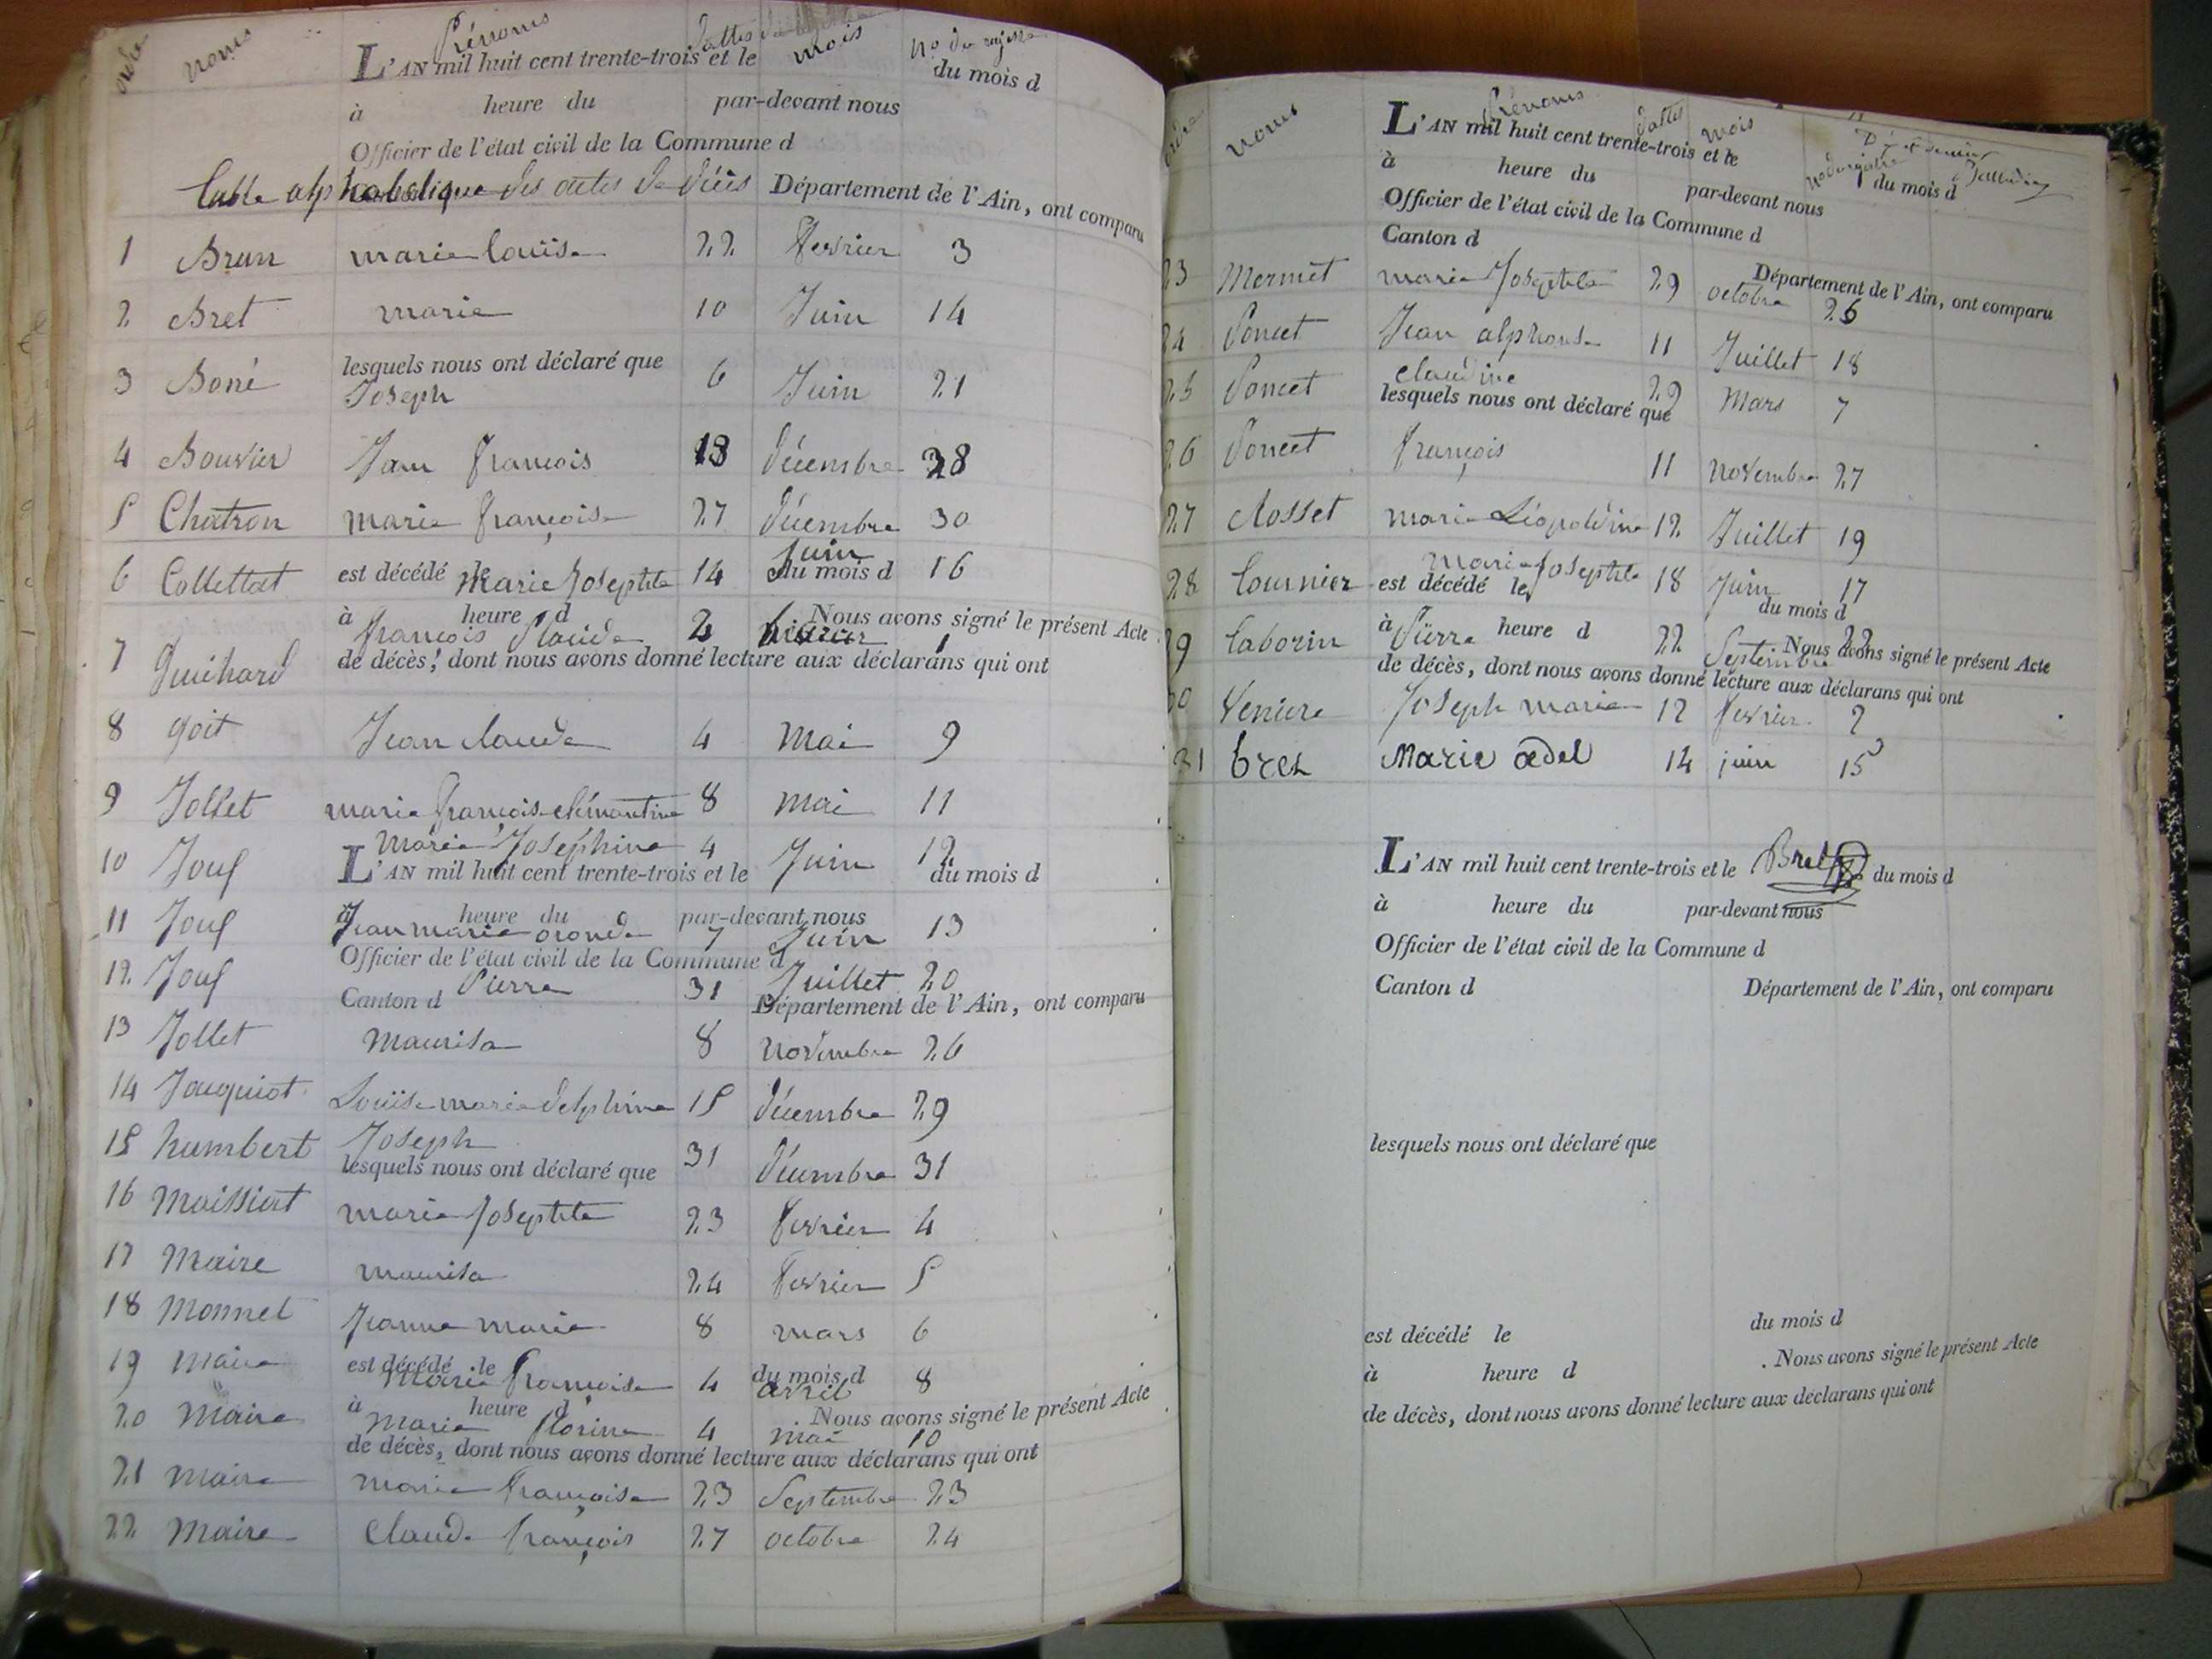 ordre noms Prénoms dattes mois No du registre
L'AN mil huit cent trente-trois et le du mois d
à heure du par-devant nous
Officier de l'état civil de la Commune d
Table alphabetique des actes de décès Département de l'Ain, ont comparu
1 Brun marie Louise 22 février 3
2 Bret marie 10 Juin 14
lesquels nous ont déclaré que
3 Boné Joseph 6 Juin 21
4 Bouvier Jean françois 13 décembre 28
5 Chatron marie françoise 27 décembre 30
6 Collettat est décédé le marie Josephte 14 Juin du mois d 16
à heure d Nous avons signé le présent Acte
7 Guichard françois Placide 2 1
de décès, dont nous avons donné lecture aux déclarans qui ont
8 goit Jean claude 4 mai 9
9 Jollet marie françoise clémantine 8 mai 11
10 Jouf Marie Joséphine 4 Juin 12
L'AN mil huit cent trente-trois et le du mois d
à heure du par-devant nous
11 Jouf Jean marie 7 Juin 13
Officier de l'état civil de la Commune d
12 Jouf Pierre 31 Juillet 20
Canton d Département de l'Ain, ont comparu
13 Jollet maurise 8 novembre 26
14 Jacquiot Louise marie delphine 15 décembre 29
15 humbert Joseph 31 décembre 31
lesquels nous ont déclaré que
16 Maissiat marie Josephte 23 février 4
17 Maire maurise 24 février 5
18 Monnet Jeanne marie 8 mars 6
est décédé le du mois d
19 Maire Marie françoise 4 avril 8
à heure d . Nous avons signé le présent Acte
20 Maire Marie florine 4 mai 10
de décès, dont nous avons donné lecture aux déclarans qui ont
21 Maire marie françoise 23 Septembre 23
22 Maire Claude françois 27 octobre 24
ordre noms Prénoms dattes mois no du registre
L'AN mil huit cent trente-trois et le du mois d
à heure du par-devant nous
Officier de l'état civil de la Commune d
Canton d Département de l'Ain, ont comparu
23 Mermet marie Josephte 29 octobre 25
24 Poncet Jean alphonse 11 Juillet 18
25 Poncet claudine 29 Mars 7
lesquels nous ont déclaré que
26 Poncet françois 11 novembre 27
27 Rosset marie Léopoldine 12 Juillet 19
28 Tournier marie Josephte 18 Juin 17
est décédé le du mois d
à heure d Nous avons signé le présent Acte
29 Taborin Pierre 22 Septembre 22
de décès, dont nous avons donné lecture aux déclarans qui ont
30 Veniere Joseph marie 12 février 2
31 bret Marie adel 14 juin 15
L'AN mil huit cent trente-trois et le Bret du mois d
à heure du par-devant nous
Officier de l'état civil de la Commune d
Canton d Département de l'Ain, ont comparu
lesquels nous ont déclaré que
est décédé le du mois d
à heure d . Nous avons signé le présent Acte
de décès, dont nous avons donné lecture aux déclarans qui ont